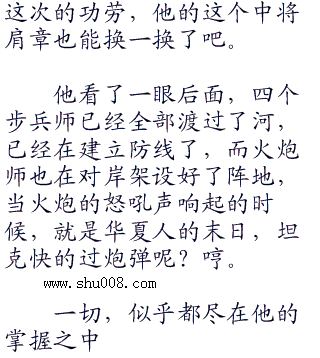 这次的功劳，他的这个中将
肩章也能换一换了吧。
他看了一眼后面，四个
步兵师已经全部渡过了河，
已经在建立防线了，而火炮
师也在对岸架设好了阵地，
当火炮的怒吼声响起的时
候，就是华夏人的末日，坦
克快的过炮弹呢？哼。
www.shu008.com
一切，似乎都尽在他的
掌握之中